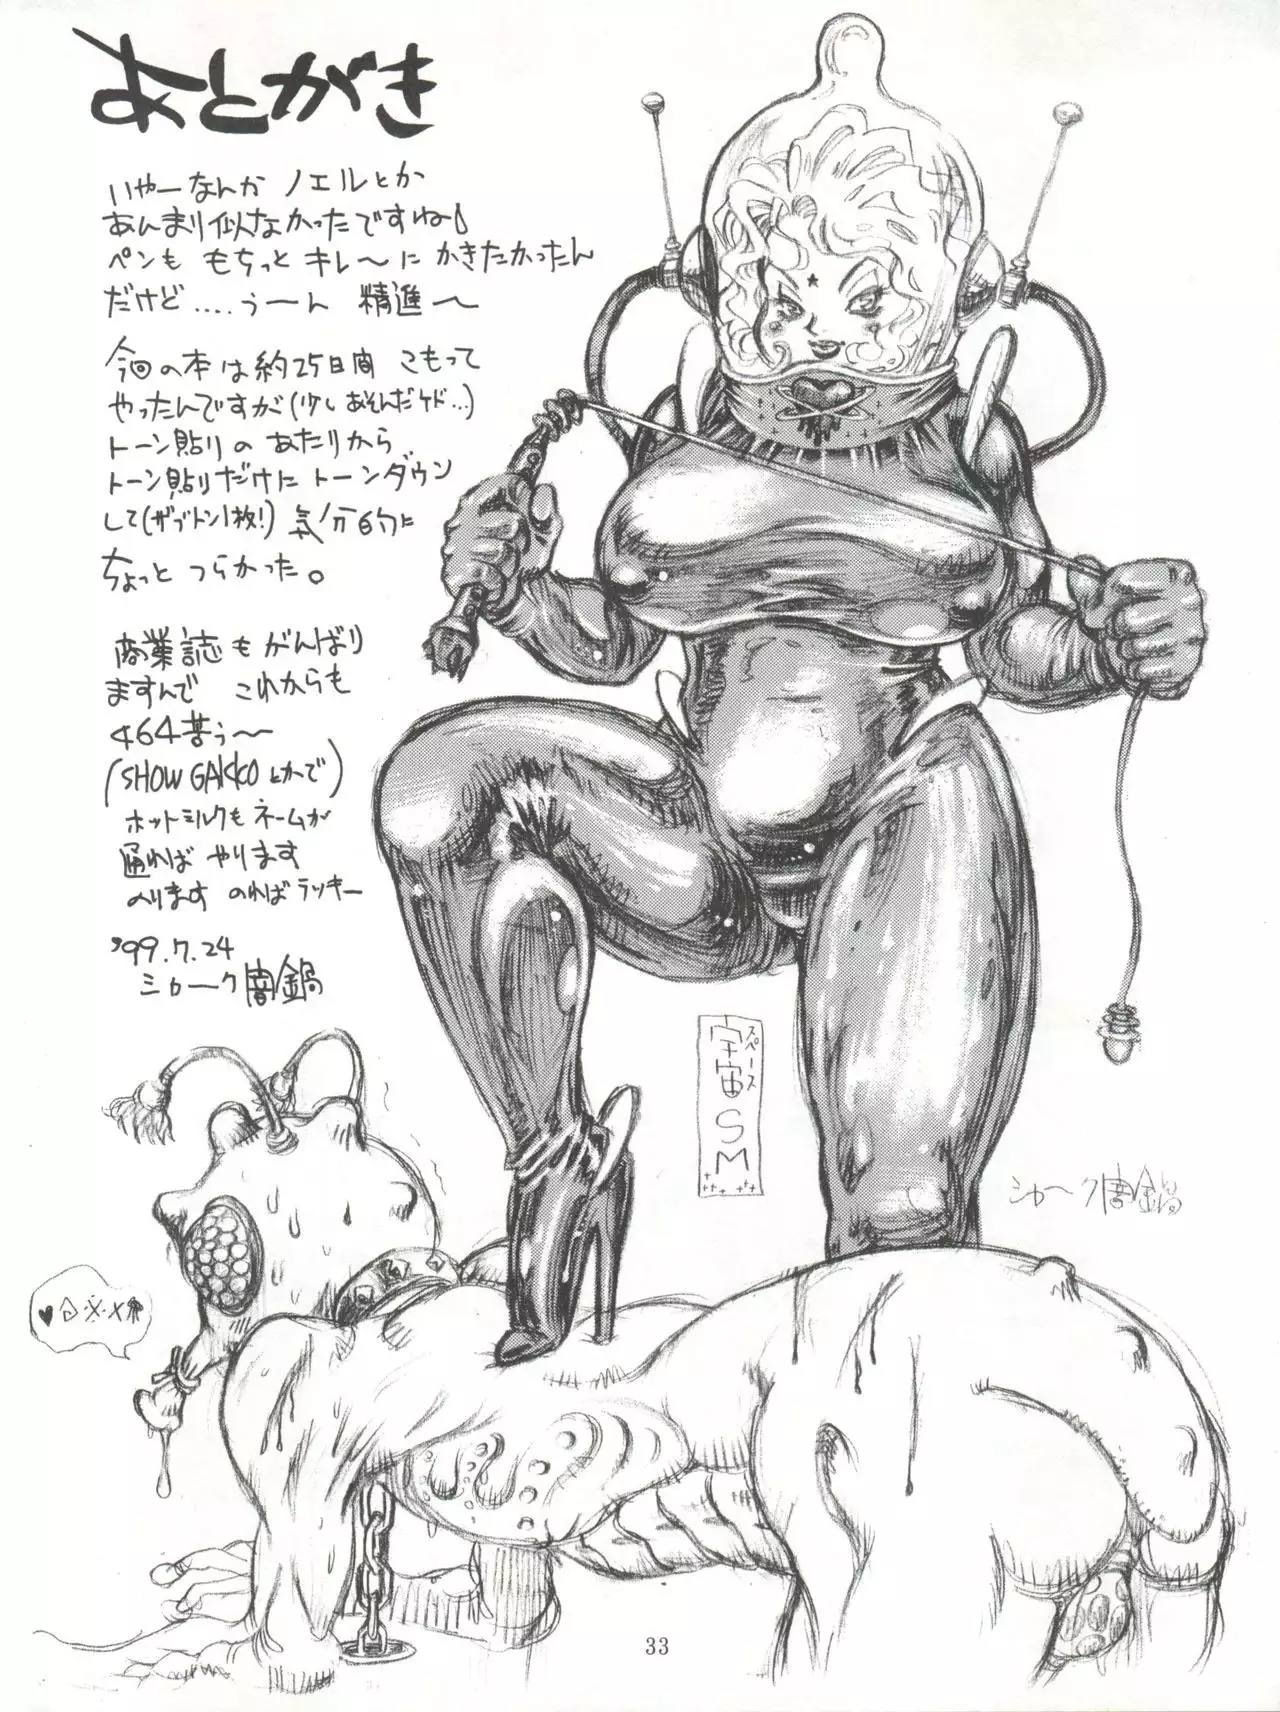 あとがき
いやーなんか ノエルとか
あんまり似なかったですね
ペンも もちっと キレ〜に かきたかったん
だけど....うーん 精進〜
今回の本は約25日間 こもって
やったんですが(少しあそんだケド...)
トーン貼りの あたりから
トーン貼りだけに トーンダウン
して(ザブトン1枚!) 気分的に
ちょっと つらかった。
商業誌も がんばり
ますんで これからも
464苦ぅ〜
(SHOW GAKKO とかで)
ホットミルクも ネームが
通れば やります
のります のればラッキー
'99.7.24
シャーク闇鍋
スペース
宇宙SM
シャーク闇鍋
33